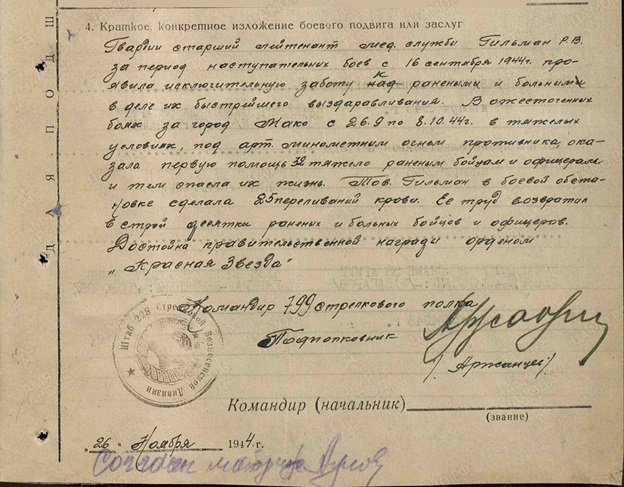 4. Краткое, конкретное изложение боевого подвига или заслуг
Гвардии старший лейтенант мед. службы Гильман Р.В.
за период наступательных боев с 16 сентября 1944г. про-
явила исключительную заботу к над ранеными и больными
в деле их быстрейшего выздаравливания. В ожесточенных
боях за город Мако с 26.9 по 8.10.44г. в тяжелых
условиях, под арт. минометным огнем противника, ока-
зала первую помощь 32 тяжело раненым бойцам и офицерам
и тем спасла их жизнь. Тов. Гильман в боевой обста-
новке сделала 25 переливаний крови. Ее труд возвратил
в строй десятки раненых и больных бойцов и офицеров.
Достойна правительственной награды орденом
„Красная Звезда"
Командир 799 стрелкового полка
Подполковник
/Аржанцев/
Штаб 228 Стрелковой Вознесенской Дивизии
Командир (начальник)
(звание)
„26" Ноября 1944г.
ДЛЯ ПОДШ